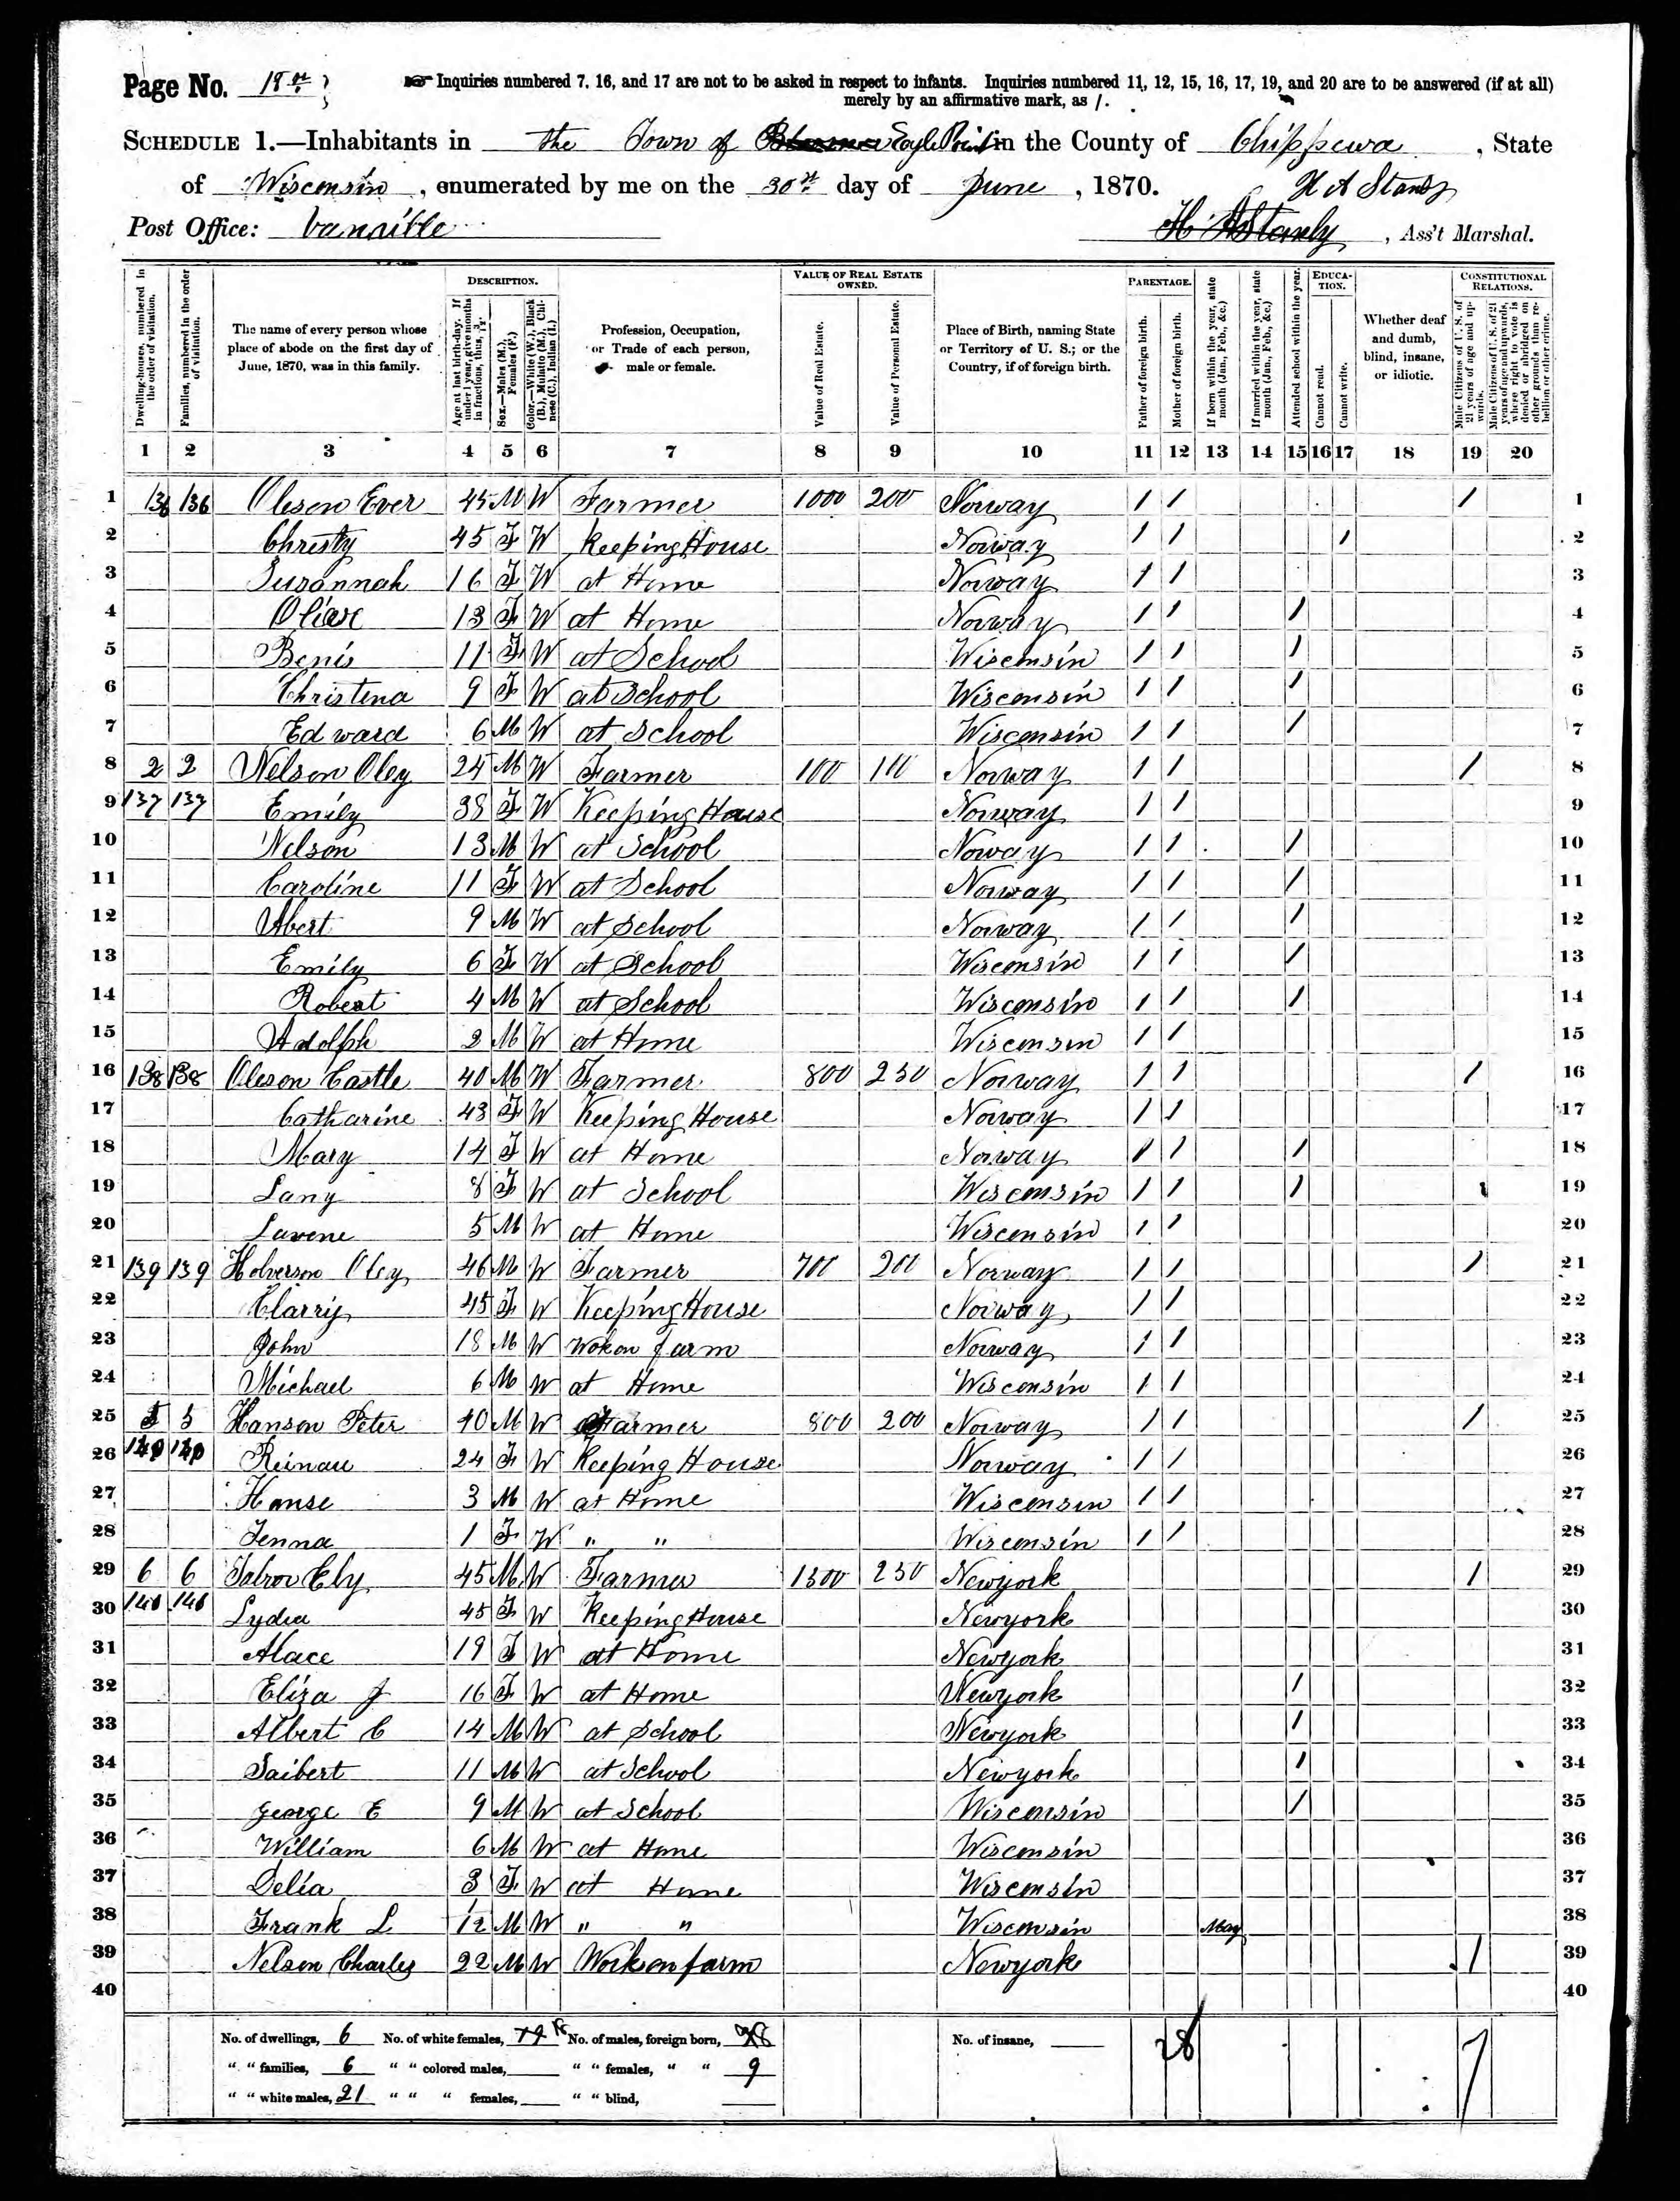 Page No. 18
Inquiries numbered 7, 16, and 17 are not to be asked in respect to infants. Inquiries numbered 11, 12, 15, 16, 17, 19, and 20 are to be answered (if at all)
merely by an affirmative mark, as /.
SCHEDULE 1.—Inhabitants in the Town of Eagle Point in the County of Chippewa, State
of Wisconsin, enumerated by me on the 30th day of June, 1870. H A Stanly
Post Office: H A Stanly, Ass't Marshal.
Dwelling-houses, numbered in the order of visitation.
Families, numbered in the order of visitation.
The name of every person whose place of abode on the first day of June, 1870, was in this family.
DESCRIPTION.
Age at last birth-day. If under 1 year, give months in fractions, thus, 3/12.
Sex.—Males (M.), Females (F.)
Color.—White (W.), Black (B.), Mulatto (M.), Chinese (C.), Indian (I.)
Profession, Occupation, or Trade of each person, male or female.
VALUE OF REAL ESTATE OWNED.
Value of Real Estate.
Value of Personal Estate.
Place of Birth, naming State or Territory of U. S.; or the Country, if of foreign birth.
PARENTAGE.
Father of foreign birth.
Mother of foreign birth.
If born within the year, state month (Jan., Feb., &c.)
If married within the year, state month (Jan., Feb., &c.)
Attended school within the year.
EDUCATION.
Cannot read.
Cannot write.
Whether deaf and dumb, blind, insane, or idiotic.
CONSTITUTIONAL RELATIONS.
Male Citizens of U. S. of 21 years of age and upwards.
Male Citizens of U. S. of 21 years of age and upwards, where right to vote is denied or abridged on other grounds than rebellion or other crime.
1 2 3 4 5 6 7 8 9 10 11 12 13 14 15 16 17 18 19 20
1 136 136 Oleson Ever 45 M W Farmer 1000 200 Norway / / / 1
2 Christy 45 F W Keeping House Norway / / / 2
3 Susannah 16 F W at Home Norway / / 3
4 13 F W at Home Norway / / / 4
5 Benis 11 F W at School Wisconsin / / / 5
6 Christena 9 F W at School Wisconsin / / / 6
7 Edward 6 M W at School Wisconsin / / / 7
8 2 2 Nelson Oley 24 M W Farmer 100 100 Norway / / / 8
9 137 137 Emily 38 F W Keeping House Norway / / 9
10 Nelson 13 M W at School Noway / / / 10
11 Caroline 11 F W at School Norway / / / 11
12 Abert 9 M W at School Norway / / / 12
13 Emily 6 F W at School Wisconsin / / / 13
14 Robert 4 M W at School Wisconsin / / / 14
15 Adolph 2 M W at Home Wisconsin / / 15
16 138 138 Oleson Castle 40 M W Farmer 800 250 Norway / / / 16
17 Catharine 43 F W Keeping House Norway / / 17
18 Mary 14 F W at Home Norway / / / 18
19 Lany 8 F W at School Wisconsin / / / 19
20 Lavene 5 M W at Home Wisconsin / / 20
21 139 139 Holverson Oley 46 M W Farmer 700 200 Norway / / / 21
22 Clarry 45 F W Keeping House Norway / / 22
23 John 18 M W Wokon farm Norway / / 23
24 Michael 6 M W at Home Wisconsin / / 24
25 5 5 Hanson Peter 40 M W Farmer 800 200 Norway / / / 25
26 140 140 Reinau 24 F W Keeping House Norway / / 26
27 Hanse 3 M W at Home Wisconsin / / 27
28 Jenna 1 F W " " Wisconsin / / 28
29 6 6 Ely 45 M W Farmer 1300 250 Newyork / 29
30 Lydia 45 F W Keeping House Newyork 30
31 Alace 19 F W at Home Newyork 31
32 Eliza J 16 F W at Home Newyork / 32
33 Albert C 14 M W at School Newyork / 33
34 Saibert 11 M W at School Newyork / 34
35 George E 9 M W at School Wisconsin / 35
36 William 6 M W at Home Wisconsin 36
37 Delia 3 F W at Home Wisconsin 37
38 Frank L 1/12 M W " " Wisconsin May 38
39 Nelson Charles 22 M W Work on farm Newyork / 39
40 40
No. of dwellings, 6 No. of white females, 18 No. of males, foreign born, No. of insane, 28 7
" " families, 6 " " colored males, " " females, " " 9
" " white males, 21 " " " females, " " blind,